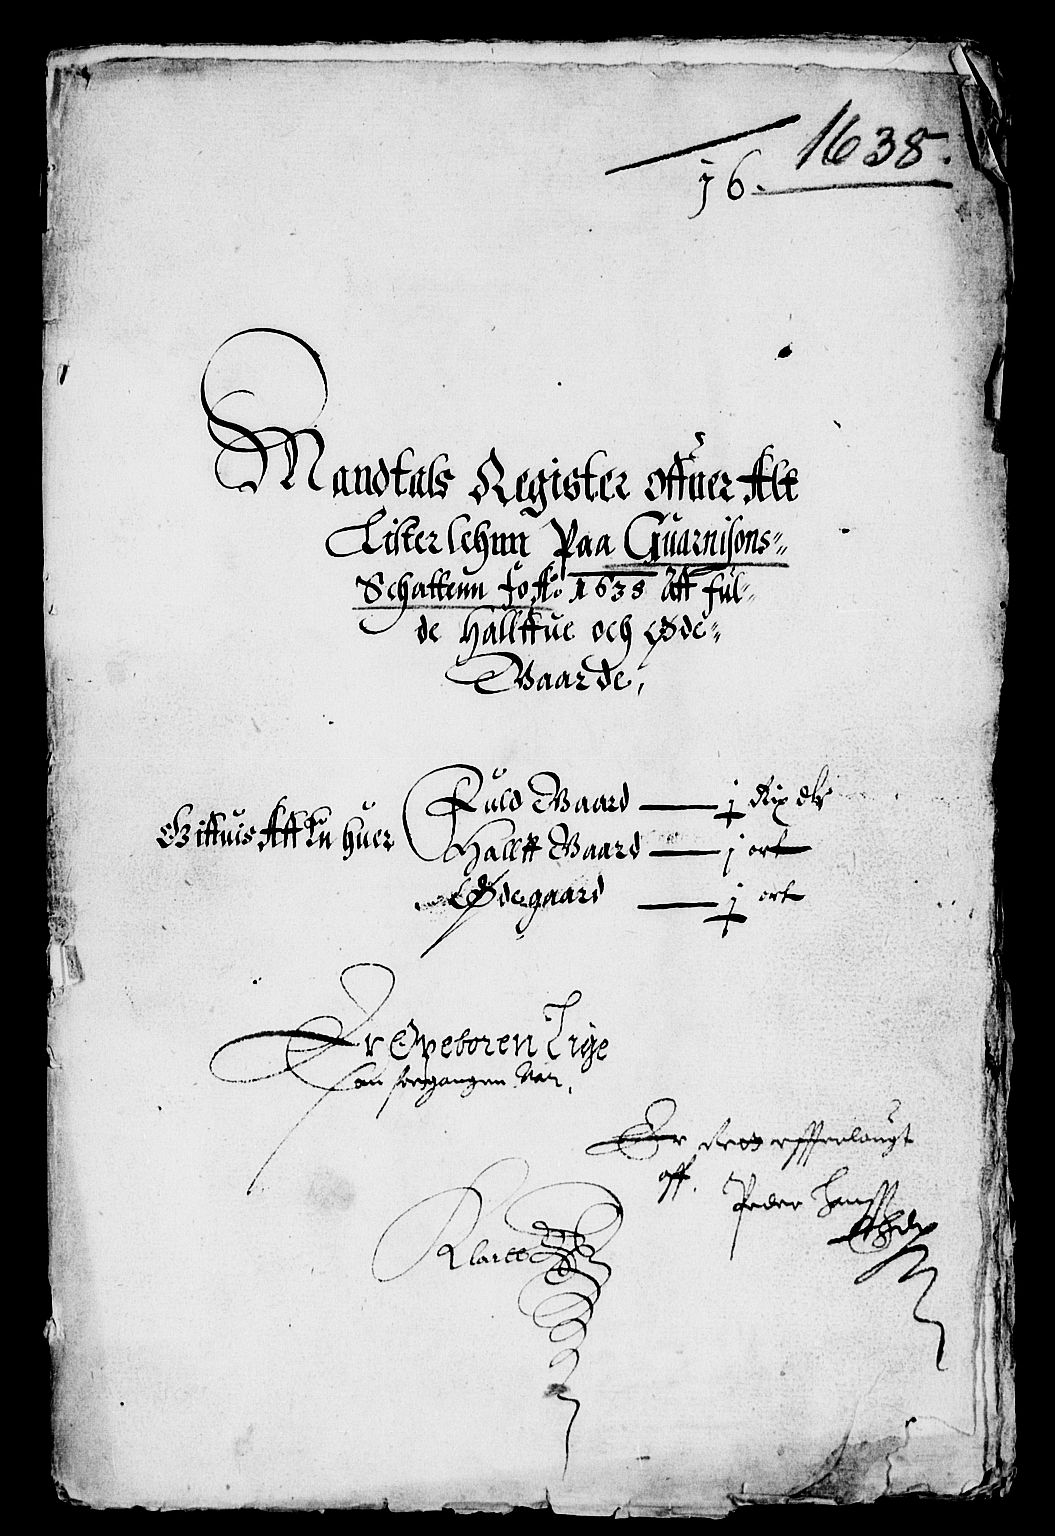 1638.
j6.
Mandtals Register offuer Alt
Lister lehnn Paa Guarnisons-
Schattenn 1638 Att ful-
de Hallffue och Øde-
Gaarde,
Giffuis Aff En huer
Fuld Gaard — j Rix dlr
Hallff Gaard — j ort
Ødegaard — j ort
Er Opeboren Lige
som forgangen Aar,
Er
off. Peder
Klartt